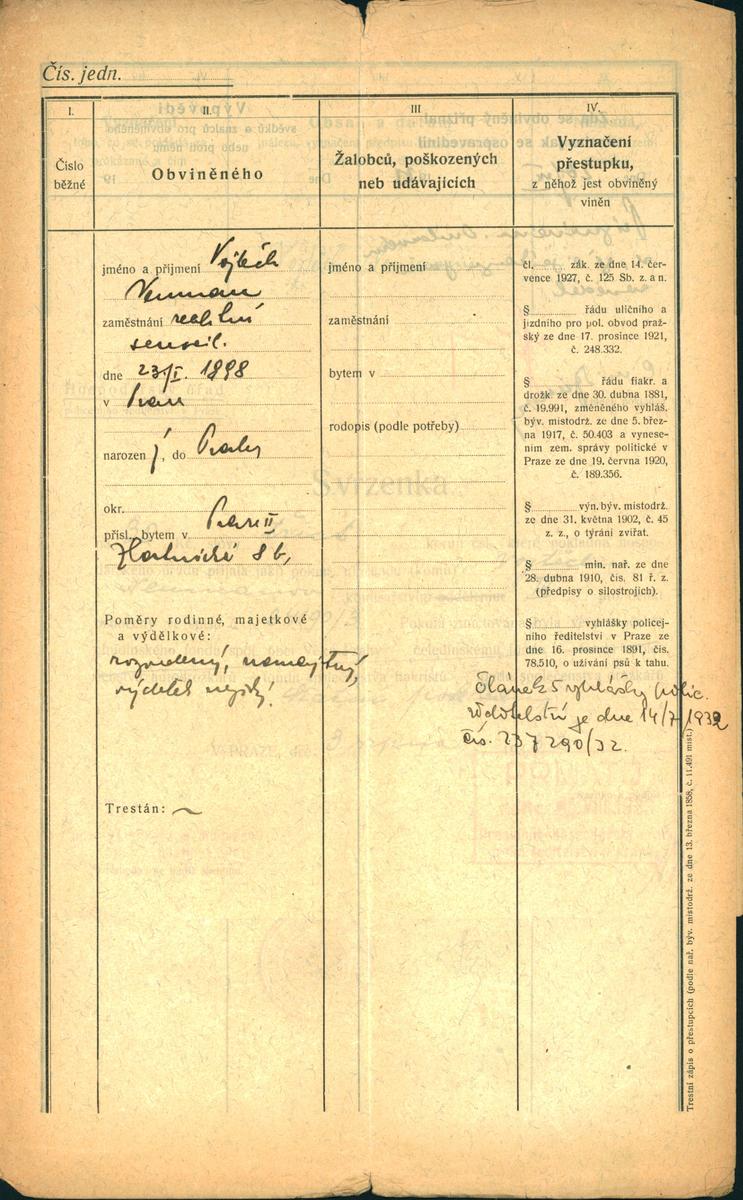 Čís. jedn.
I.
Číslo
běžné
II.
Obviněného
III
Žalobců, poškozených
neb udávajících
IV.
Vyznačení
přestupku,
z něhož jest obviněný
viněn
jméno a přijmení Vojtěch
Neuman
zaměstnání realitní
sensal.
dne 23/I. 1898
v Praze
narozen ý, do Prahy
okr.
přísl., bytem v Praze II
8
Poměry rodinné, majetkové
a výdělkové:
rozvedený, nemajetný,
výdělek nejistý.
Trestán:
jméno a přijmení
zaměstnání
bytem v
rodopis (podle potřeby)
čl. zák. ze dne 14. čer-
vence 1927, č. 125 Sb. z. a n.
§ řádu uličního a
jízdního pro pol. obvod praž-
ský ze dne 17. prosince 1921,
č. 248.332.
§ řádu fiakr. a
drožk. ze dne 30. dubna 1881,
č. 19.991, změněného vyhláš.
býv. místodrž. ze dne 5. břez-
na 1917, č. 50.403 a vynese-
ním zem. správy politické v
Praze ze dne 19. června 1920,
č. 189.356.
§ výn. býv. místodrž.
ze dne 31. května 1902, č. 45
z. z., o týrání zvířat.
§ min. nař. ze dne
28. dubna 1910, čís. 81 ř. z.
(předpisy o silostrojích).
§ vyhlášky policej-
ního ředitelství v Praze ze
dne 16. prosince 1891, čís.
78.510, o užívání psů k tahu.
článek 5 vyhlášky polic.
ředitelství ze dne 14/7 1932
čís. 237290/32.
Trestní zápis o přestupcích (podle nař. býv. místodrž. ze dne 13. března 1858, č. 11.491 míst.)